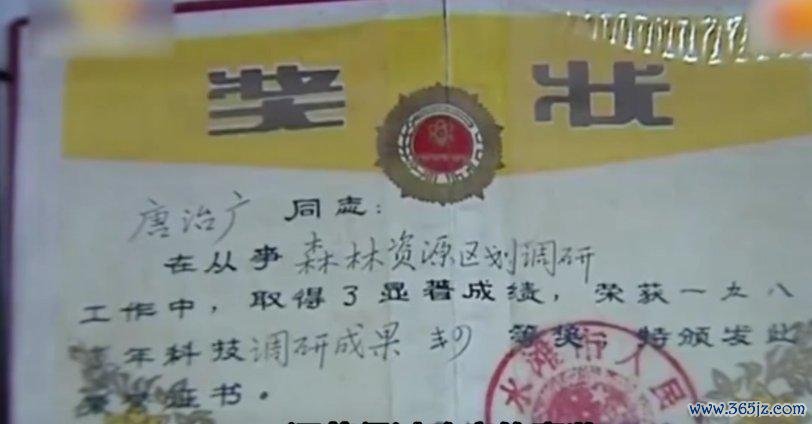 奖状
唐治广 同志：
在从事 森林资源区划调研
工作中，取得了显著成绩，荣获一九八
年科技调研成果 等奖，特颁发此
证书。
水滩市人民
www.365jz.com